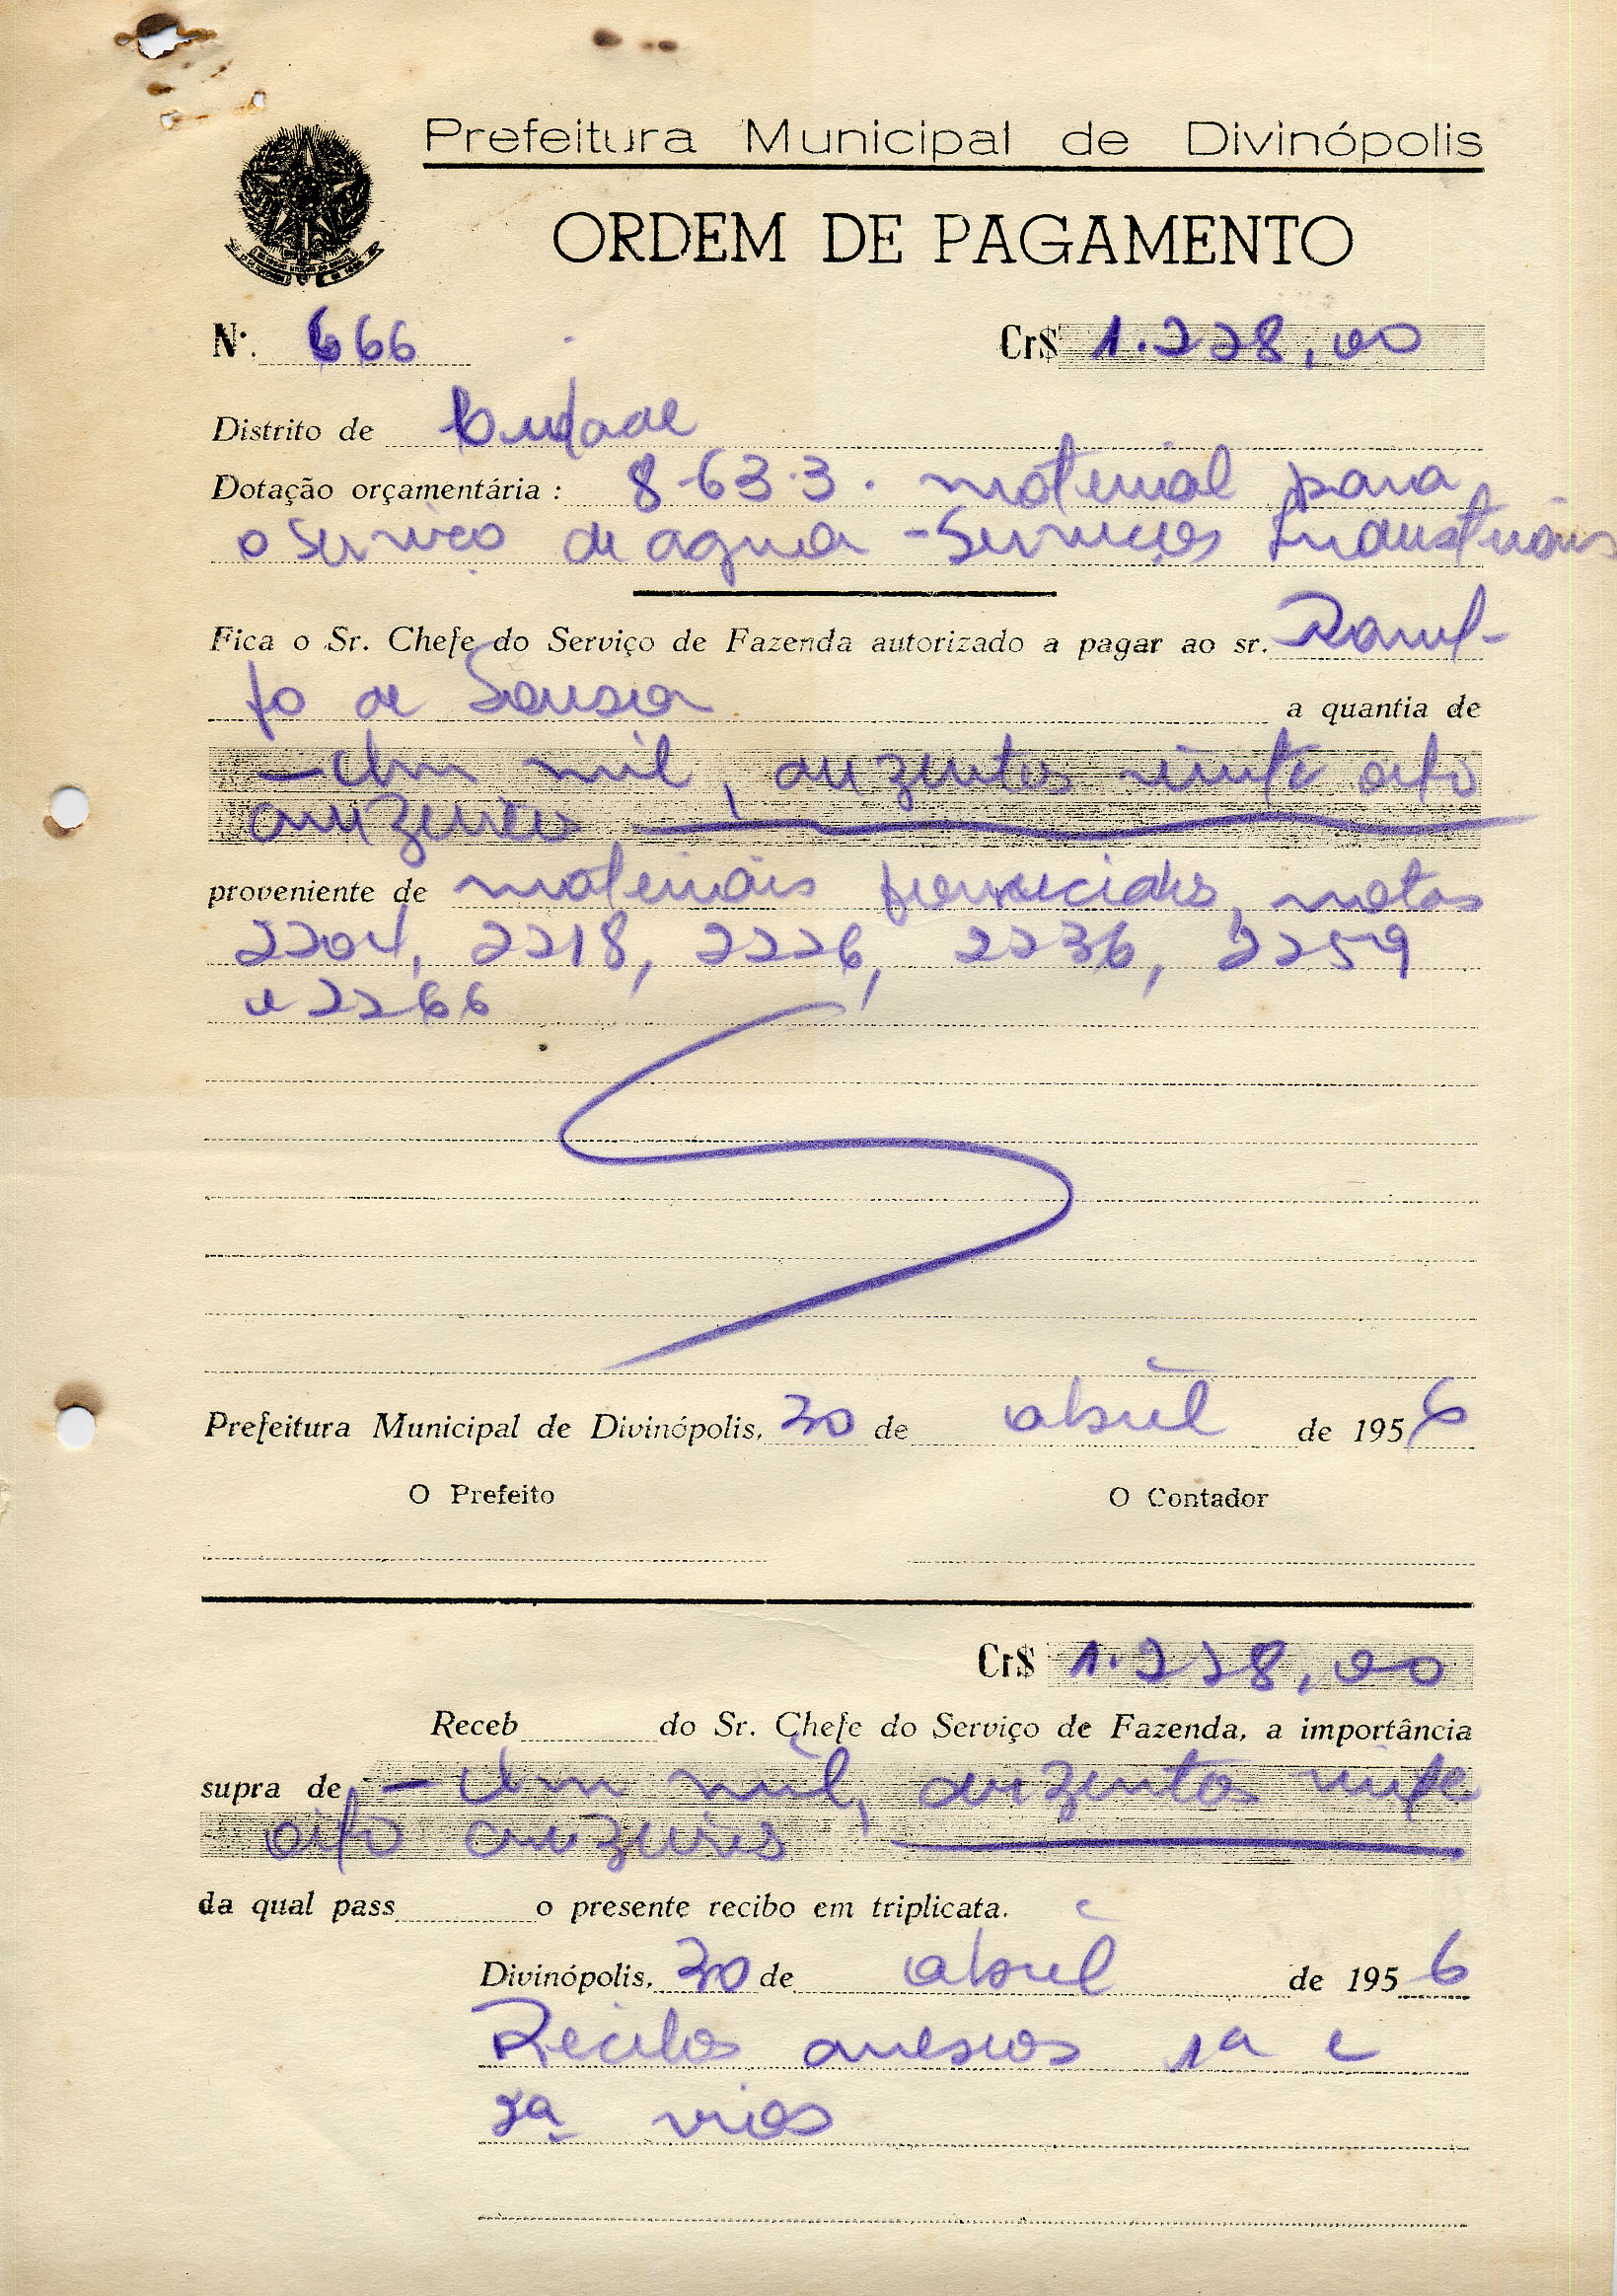 Prefeitura Municipal de Divinópolis
ORDEM DE PAGAMENTO
Nº. 666 Cr$ 1.228,00
Distrito de Cidade
Dotação orçamentária: 8-63-3. material para
o serviço de agua - Serviços Industriais
Fica o Sr. Chefe do Serviço de Fazenda autorizado a pagar ao sr. Ranul-
fo de Sousa a quantia de
— Um mil, duzentos vinte oito
cruzeiros
proveniente de materiais fornecidos, notas
2204, 2218, 2226, 2236, 2259
e 2266
Prefeitura Municipal de Divinópolis, 30 de abril de 1956
O Prefeito O Contador
Cr$ 1.228,00
Receb do Sr. Chefe do Serviço de Fazenda, a importância
supra de — Um mil, duzentos vinte
oito cruzeiros
da qual pass o presente recibo em triplicata.
Divinópolis, 30 de abril de 1956
Recibos anexos 1a e
2a vias